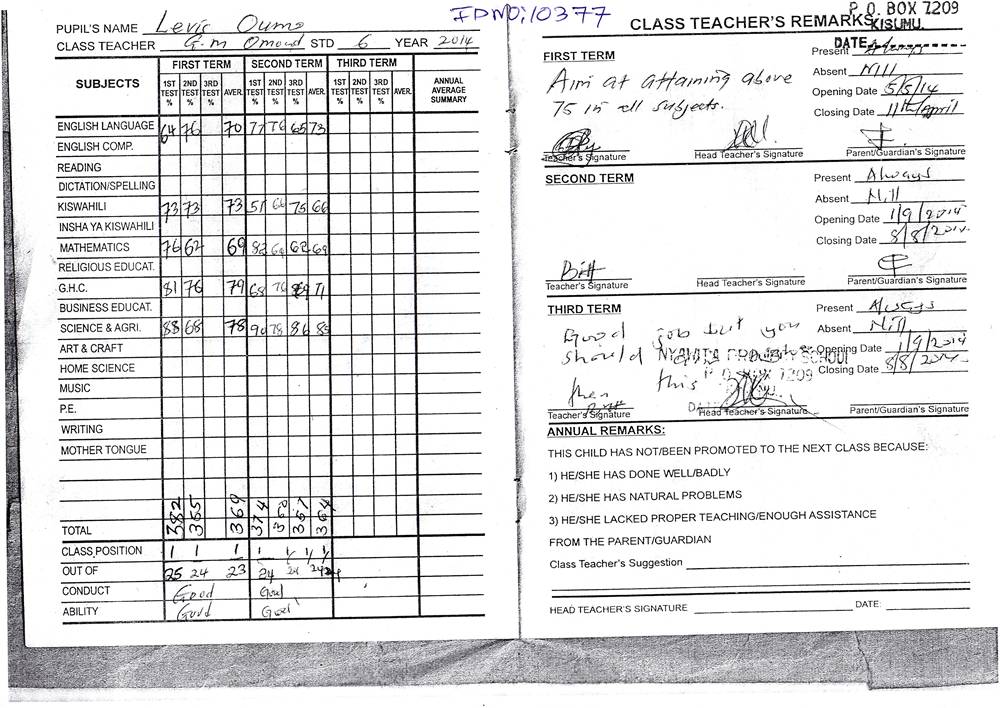 IDNO:10377
PUPIL'S NAME Levis Oumo
CLASS TEACHER G.m Omondi STD 6 YEAR 2014
SUBJECTS FIRST TERM SECOND TERM THIRD TERM ANNUAL AVERAGE SUMMARY
1ST TEST % 2ND TEST % 3RD TEST % AVER. 1ST TEST % 2ND TEST % 3RD TEST % AVER. 1ST TEST % 2ND TEST % 3RD TEST % AVER.
ENGLISH LANGUAGE 64 76 70 77 76 65 73
ENGLISH COMP.
READING
DICTATION/SPELLING
KISWAHILI 73 73 73 51 66 75 66
INSHA YA KISWAHILI
MATHEMATICS 76 62 69 82 69 62 69
RELIGIOUS EDUCAT.
G.H.C. 81 76 79 68 76 69 71
BUSINESS EDUCAT.
SCIENCE & AGRI. 88 68 78 90 78 86 85
ART & CRAFT
HOME SCIENCE
MUSIC
P.E.
WRITING
MOTHER TONGUE
TOTAL 382 365 369 374 357 364
CLASS POSITION 1 1 1 1 1 1 1
OUT OF 25 24 23 24 24 24 24
CONDUCT Good Good
ABILITY Good Good
P. O. BOX 7209
CLASS TEACHER'S REMARKS KISUMU.
DATE
FIRST TERM
Present Always
Aim at attaining above
75 in all subjects.
Absent Nill
Opening Date 5/5/14
Closing Date 11th April
Teacher's Signature Head Teacher's Signature Parent/Guardian's Signature
SECOND TERM
Present Always
Absent Nill
Opening Date 1/9/2014
Closing Date 8/8/2014
Teacher's Signature Head Teacher's Signature Parent/Guardian's Signature
THIRD TERM
Present Always
Good job but you
Absent Nill
should
SCHOOL
Opening Date 1/9/2014
this
7209
Closing Date 8/8/2014
Teacher's Signature Head Teacher's Signature Parent/Guardian's Signature
ANNUAL REMARKS:
THIS CHILD HAS NOT/BEEN PROMOTED TO THE NEXT CLASS BECAUSE:
1) HE/SHE HAS DONE WELL/BADLY
2) HE/SHE HAS NATURAL PROBLEMS
3) HE/SHE LACKED PROPER TEACHING/ENOUGH ASSISTANCE
FROM THE PARENT/GUARDIAN
Class Teacher's Suggestion
HEAD TEACHER'S SIGNATURE DATE: